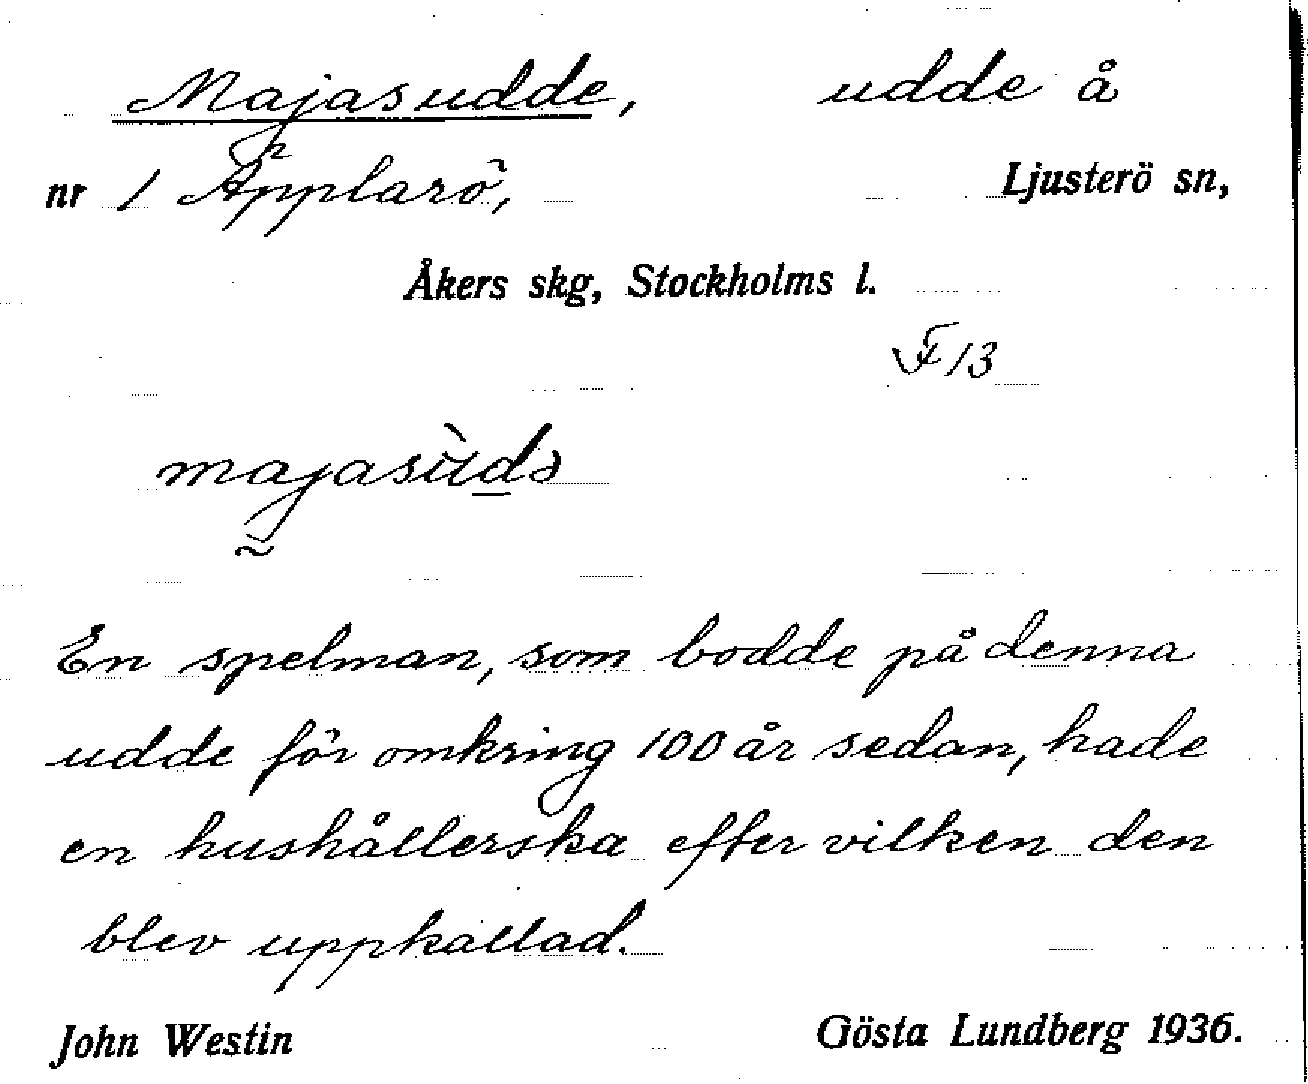 Majasudde, udde å
nr 1 Äpplarö, Ljusterö sn,
Åkers skg, Stockholms l.
F 13
majasùdə
En spelman, som bodde på denna
udde för omkring 100 år sedan, hade
en hushållerska efter vilken den
blev uppkallad.
John Westin Gösta Lundberg 1936.